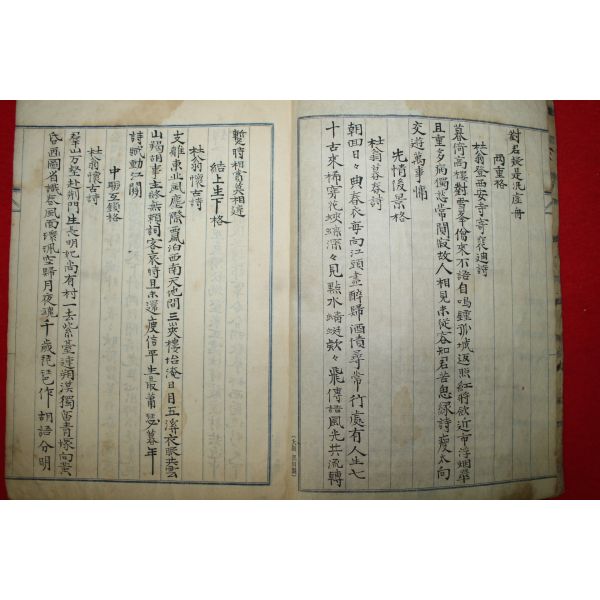 對君疑是泛虛舟
兩重格
杜翁登西安寺寄裴迪詩
暮倚高樓對雪峯僧來不語自鳴鍾孤城返照紅將歛近市浮烟翠
且重多病獨愁常闃寂故人相見未從容知君苦思緣詩瘦太向
交遊萬事慵
先情後景格
杜翁暮春詩
朝回日々典春衣每向江頭盡醉歸酒債尋常行處有人生七
十古來稀穿花蛺蝶深々見點水蜻蜓欵々飛傳語風光共流轉
暫時相賞莫相違
結上生下格
杜翁懷古詩
支離東北風塵際漂泊西南天地間三峽樓坮淹日月五溪衣服共雲
山羯胡事主終無賴詞客哀時且未還庾信平生最蕭瑟暮年
詩賦動江關
中聯互鎖格
杜翁懷古詩
羣山万壑赴荊門生長明妃尚有村一去紫臺連朔漠獨留青塚向黃
昏画圖省識春風面環珮空歸月夜魂千歲琵琶作胡語分明